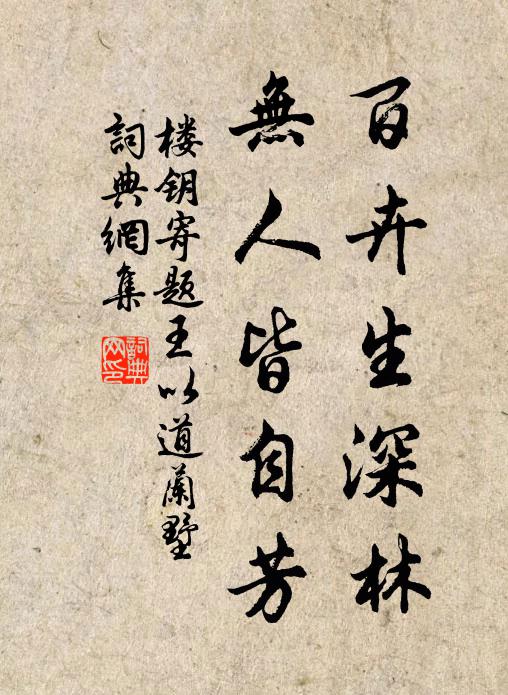 百卉生深林
無人皆自芳
楼钥寄题王以道蘭墅
詞典網集
詞典
网印